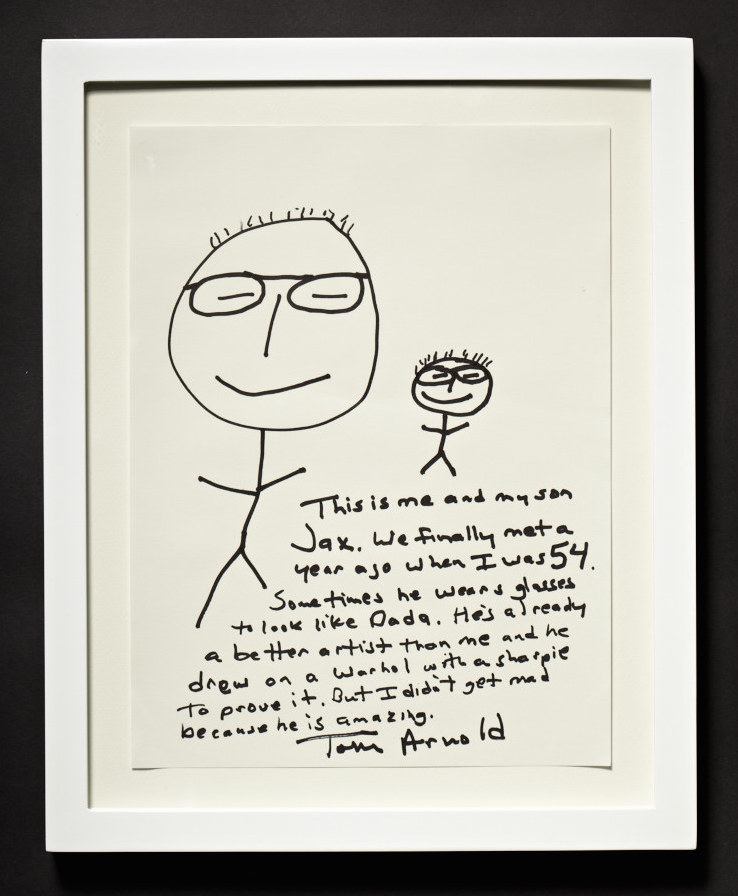 This is me and my son
Jax. We finally met a
year ago when I was 54.
Sometimes he wears glasses
to look like Dada. He's already
a better artist than me and he
drew on a Warhol with a sharpie
to prove it. But I didn't get mad
because he is amazing.
Tom Arnold